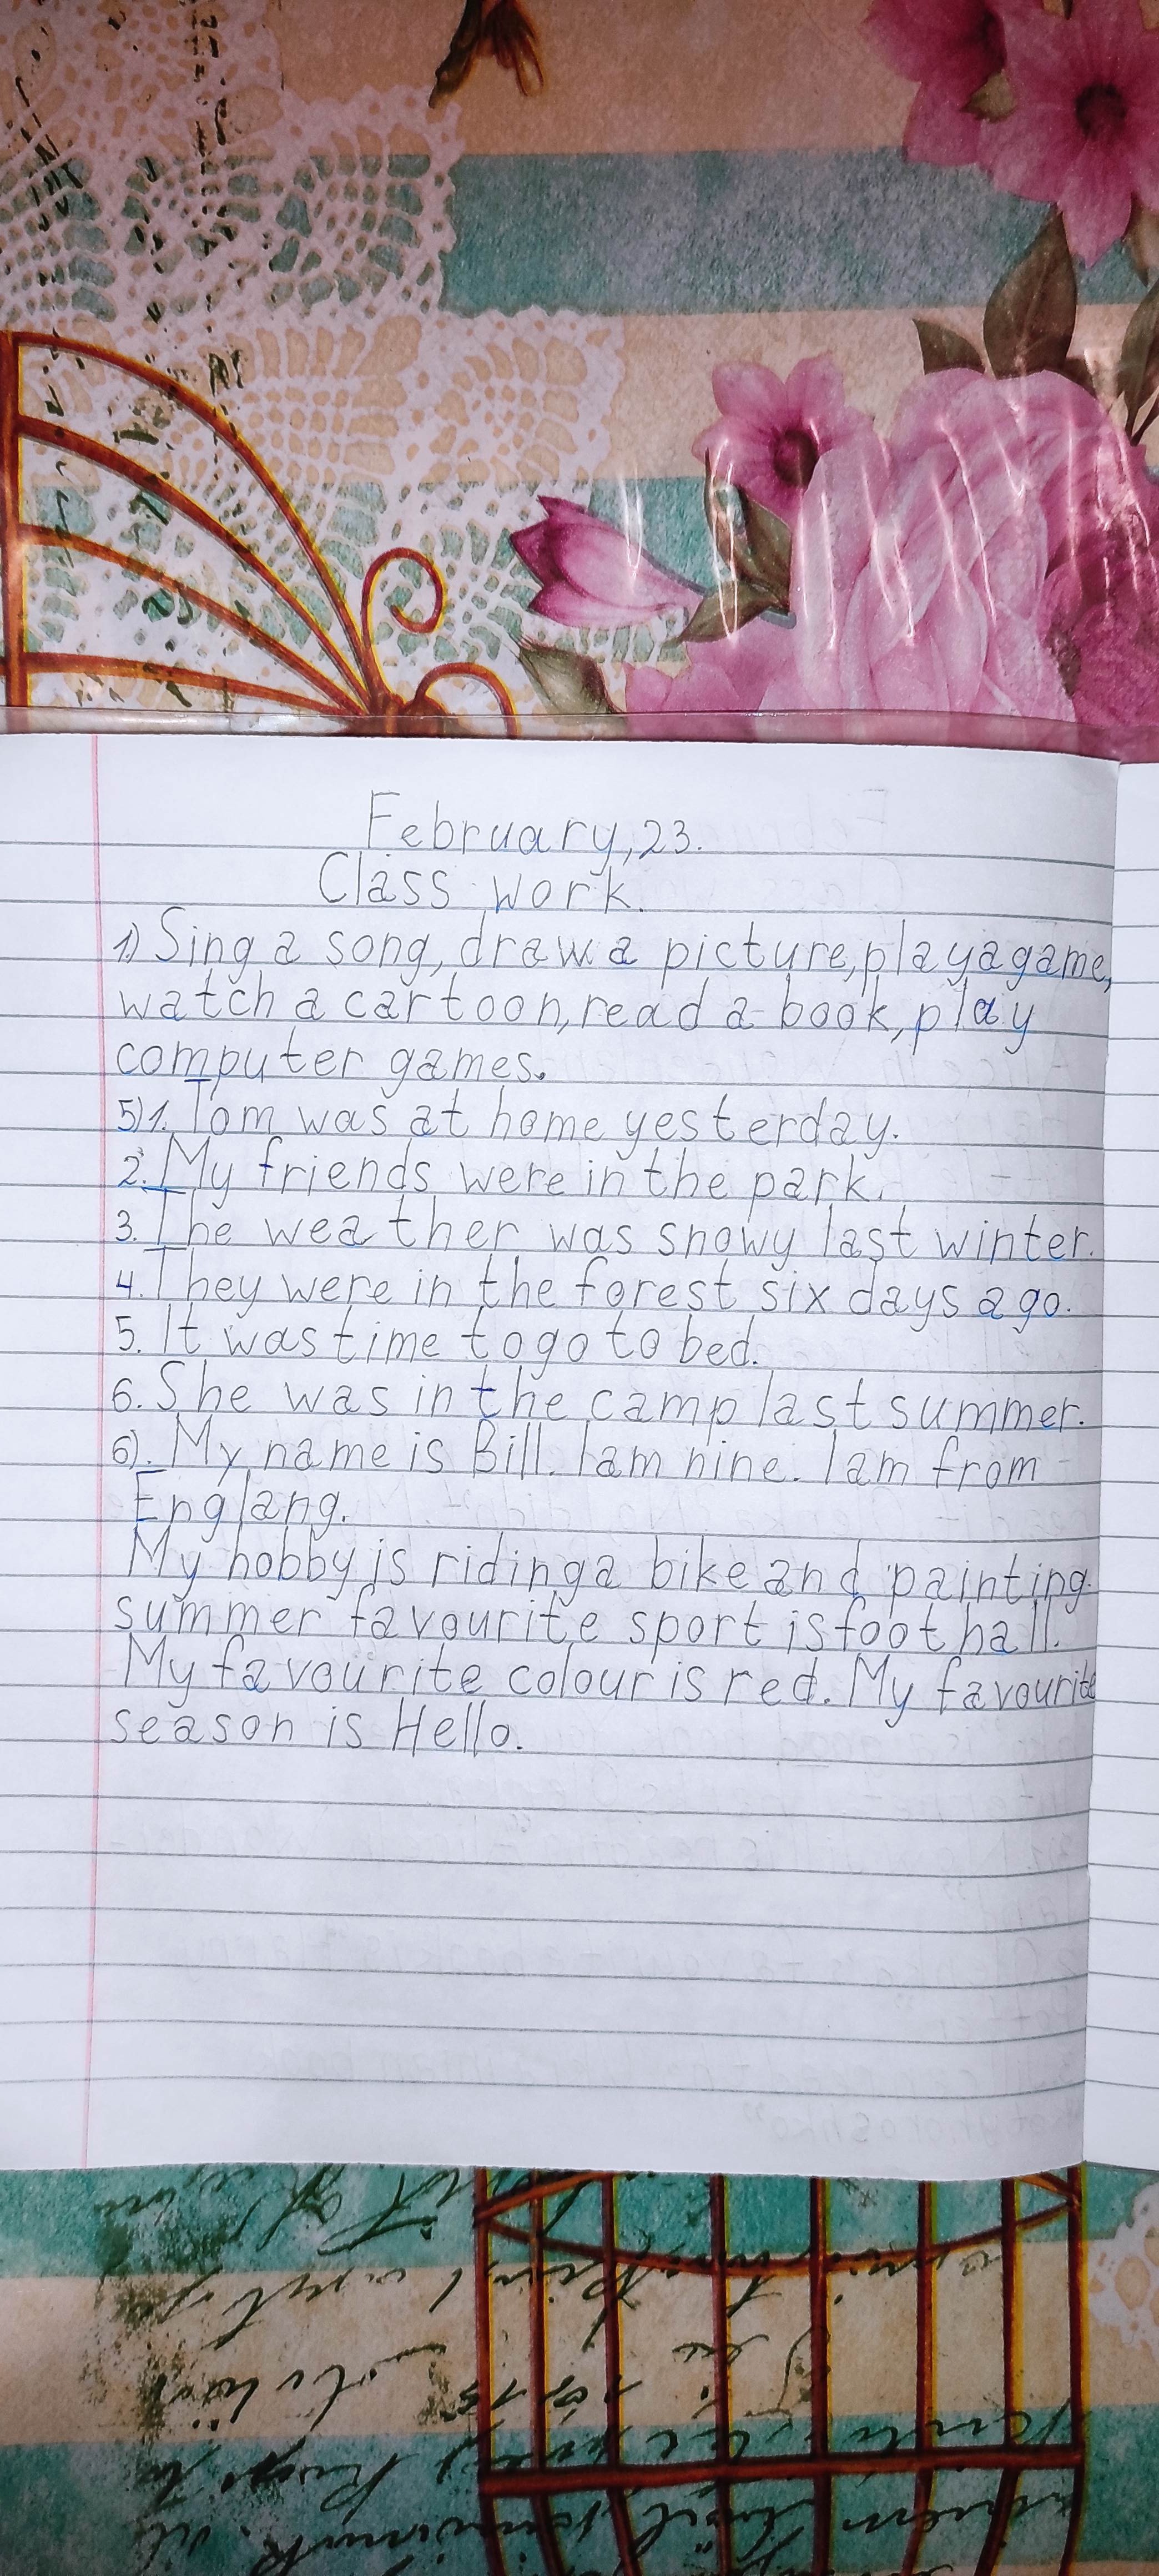 February, 23.
Class work.
1) Sing a song, draw a picture, play a game,
watch a cartoon, read a book, play
computer games.
5) 1. Tom was at home yesterday.
2. My friends were in the park.
3. The weather was snowy last winter.
4. They were in the forest six days ago.
5. It was time to go to bed.
6. She was in the camp last summer.
6). My name is Bill. I am nine. I am from
Englang.
My hobby is riding a bike and painting.
summer favourite sport is foot ball.
My favourite colour is red. My favourite
season is Hello.